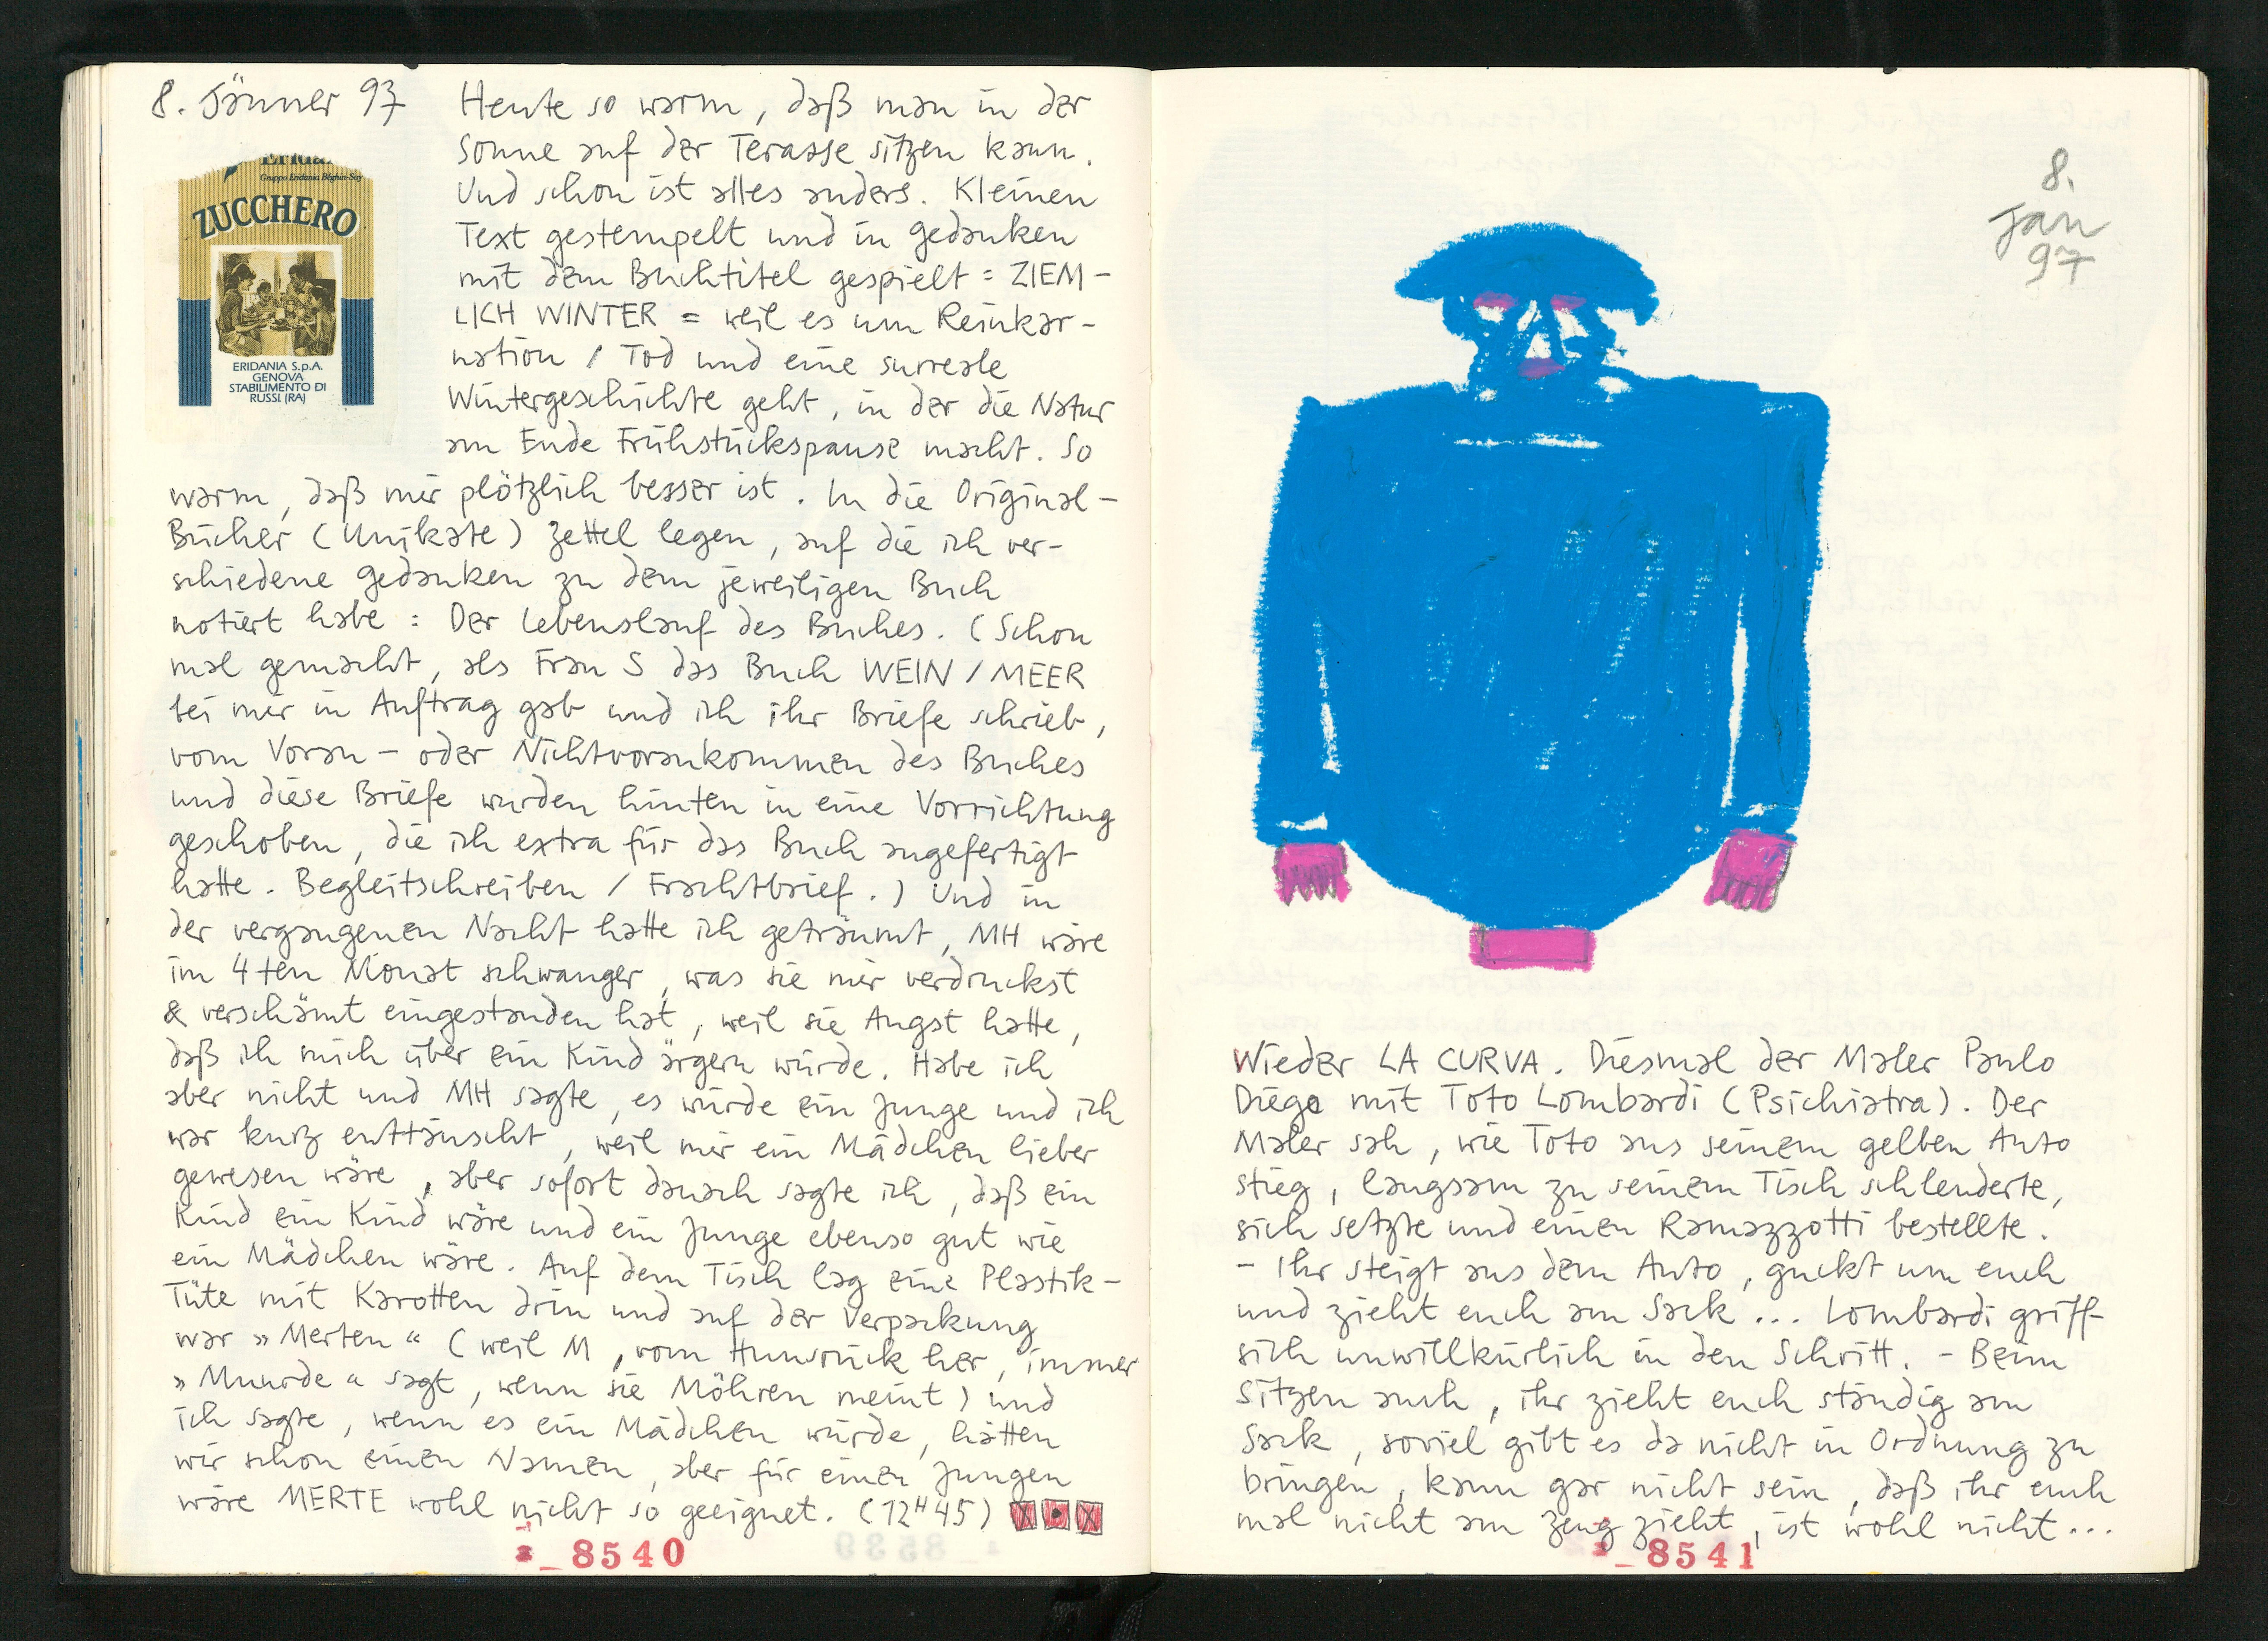 8. Jänner 97
Erida
Gruppo Eridania Béghin-Say
ZUCCHERO
ERIDANIA S.p.A.
GENOVA
STABILIMENTO DI
RUSSI (RA)
Heute so warm, daß man in der
Sonne auf der Terasse sitzen kann.
Und schon ist alles anders. Kleinen
Text gestempelt und in Gedanken
mit dem Buchtitel gespielt = ZIEM-
LICH WINTER = weil es um Reinkar-
nation / Tod und eine surreale
Wintergeschichte geht, in der die Natur
am Ende Frühstückspause macht. So
warm, daß mir plötzlich besser ist. In die Original-
Bücher (Unikate) Zettel legen, auf die ich ver-
schiedene Gedanken zu dem jeweiligen Buch
notiert habe : Der Lebenslauf des Buches. (Schon
mal gemacht, als Frau S das Buch WEIN / MEER
bei mir in Auftrag gab und ich ihr Briefe schrieb,
vom Voran- oder Nichtvorankommen des Buches
und diese Briefe wurden hinten in eine Vorrichtung
geschoben, die ich extra für das Buch angefertigt
hatte. Begleitschreiben / Frachtbrief.) Und in
der vergangenen Nacht hatte ich geträumt, MH wäre
im 4ten Monat schwanger, was sie mir verdruckst
& verschämt eingestanden hat, weil sie Angst hatte,
daß ich mich über ein Kind ärgern würde. Habe ich
aber nicht und MH sagte, es würde ein Junge und ich
war kurz enttäuscht, weil mir ein Mädchen lieber
gewesen wäre, aber sofort danach sagte ich, daß ein
Kind ein Kind wäre und ein Junge ebenso gut wie
ein Mädchen wäre. Auf dem Tisch lag eine Plastik-
Tüte mit Karotten drin und auf der Verpackung
war »Merten« (weil M, vom Hunsrück her, immer
»Muurde« sagt, wenn sie Möhren meint) und
ich sagte, wenn es ein Mädchen würde, hätten
wir schon einen Namen, aber für einen Jungen
wäre MERTE wohl nicht so geeignet. (12H45)
8540
8.
Jan
97
Wieder LA CURVA. Diesmal der Maler Paulo
Diego mit Toto Lombardi (Psichiatra). Der
Maler sah, wie Toto aus seinem gelben Auto
stieg, langsam zu seinem Tisch schlenderte,
sich setzte und einen Ramazzotti bestellte.
- Ihr steigt aus dem Auto, guckt um euch
und zieht euch am Sack ... Lombardi griff
sich unwillkürlich in den Schritt. - Beim
Sitzen auch, ihr zieht euch ständig am
Sack, soviel gibt es da nicht in Ordnung zu
bringen, kann gar nicht sein, daß ihr euch
mal nicht am Zeug zieht, ist wohl nicht ...
8541